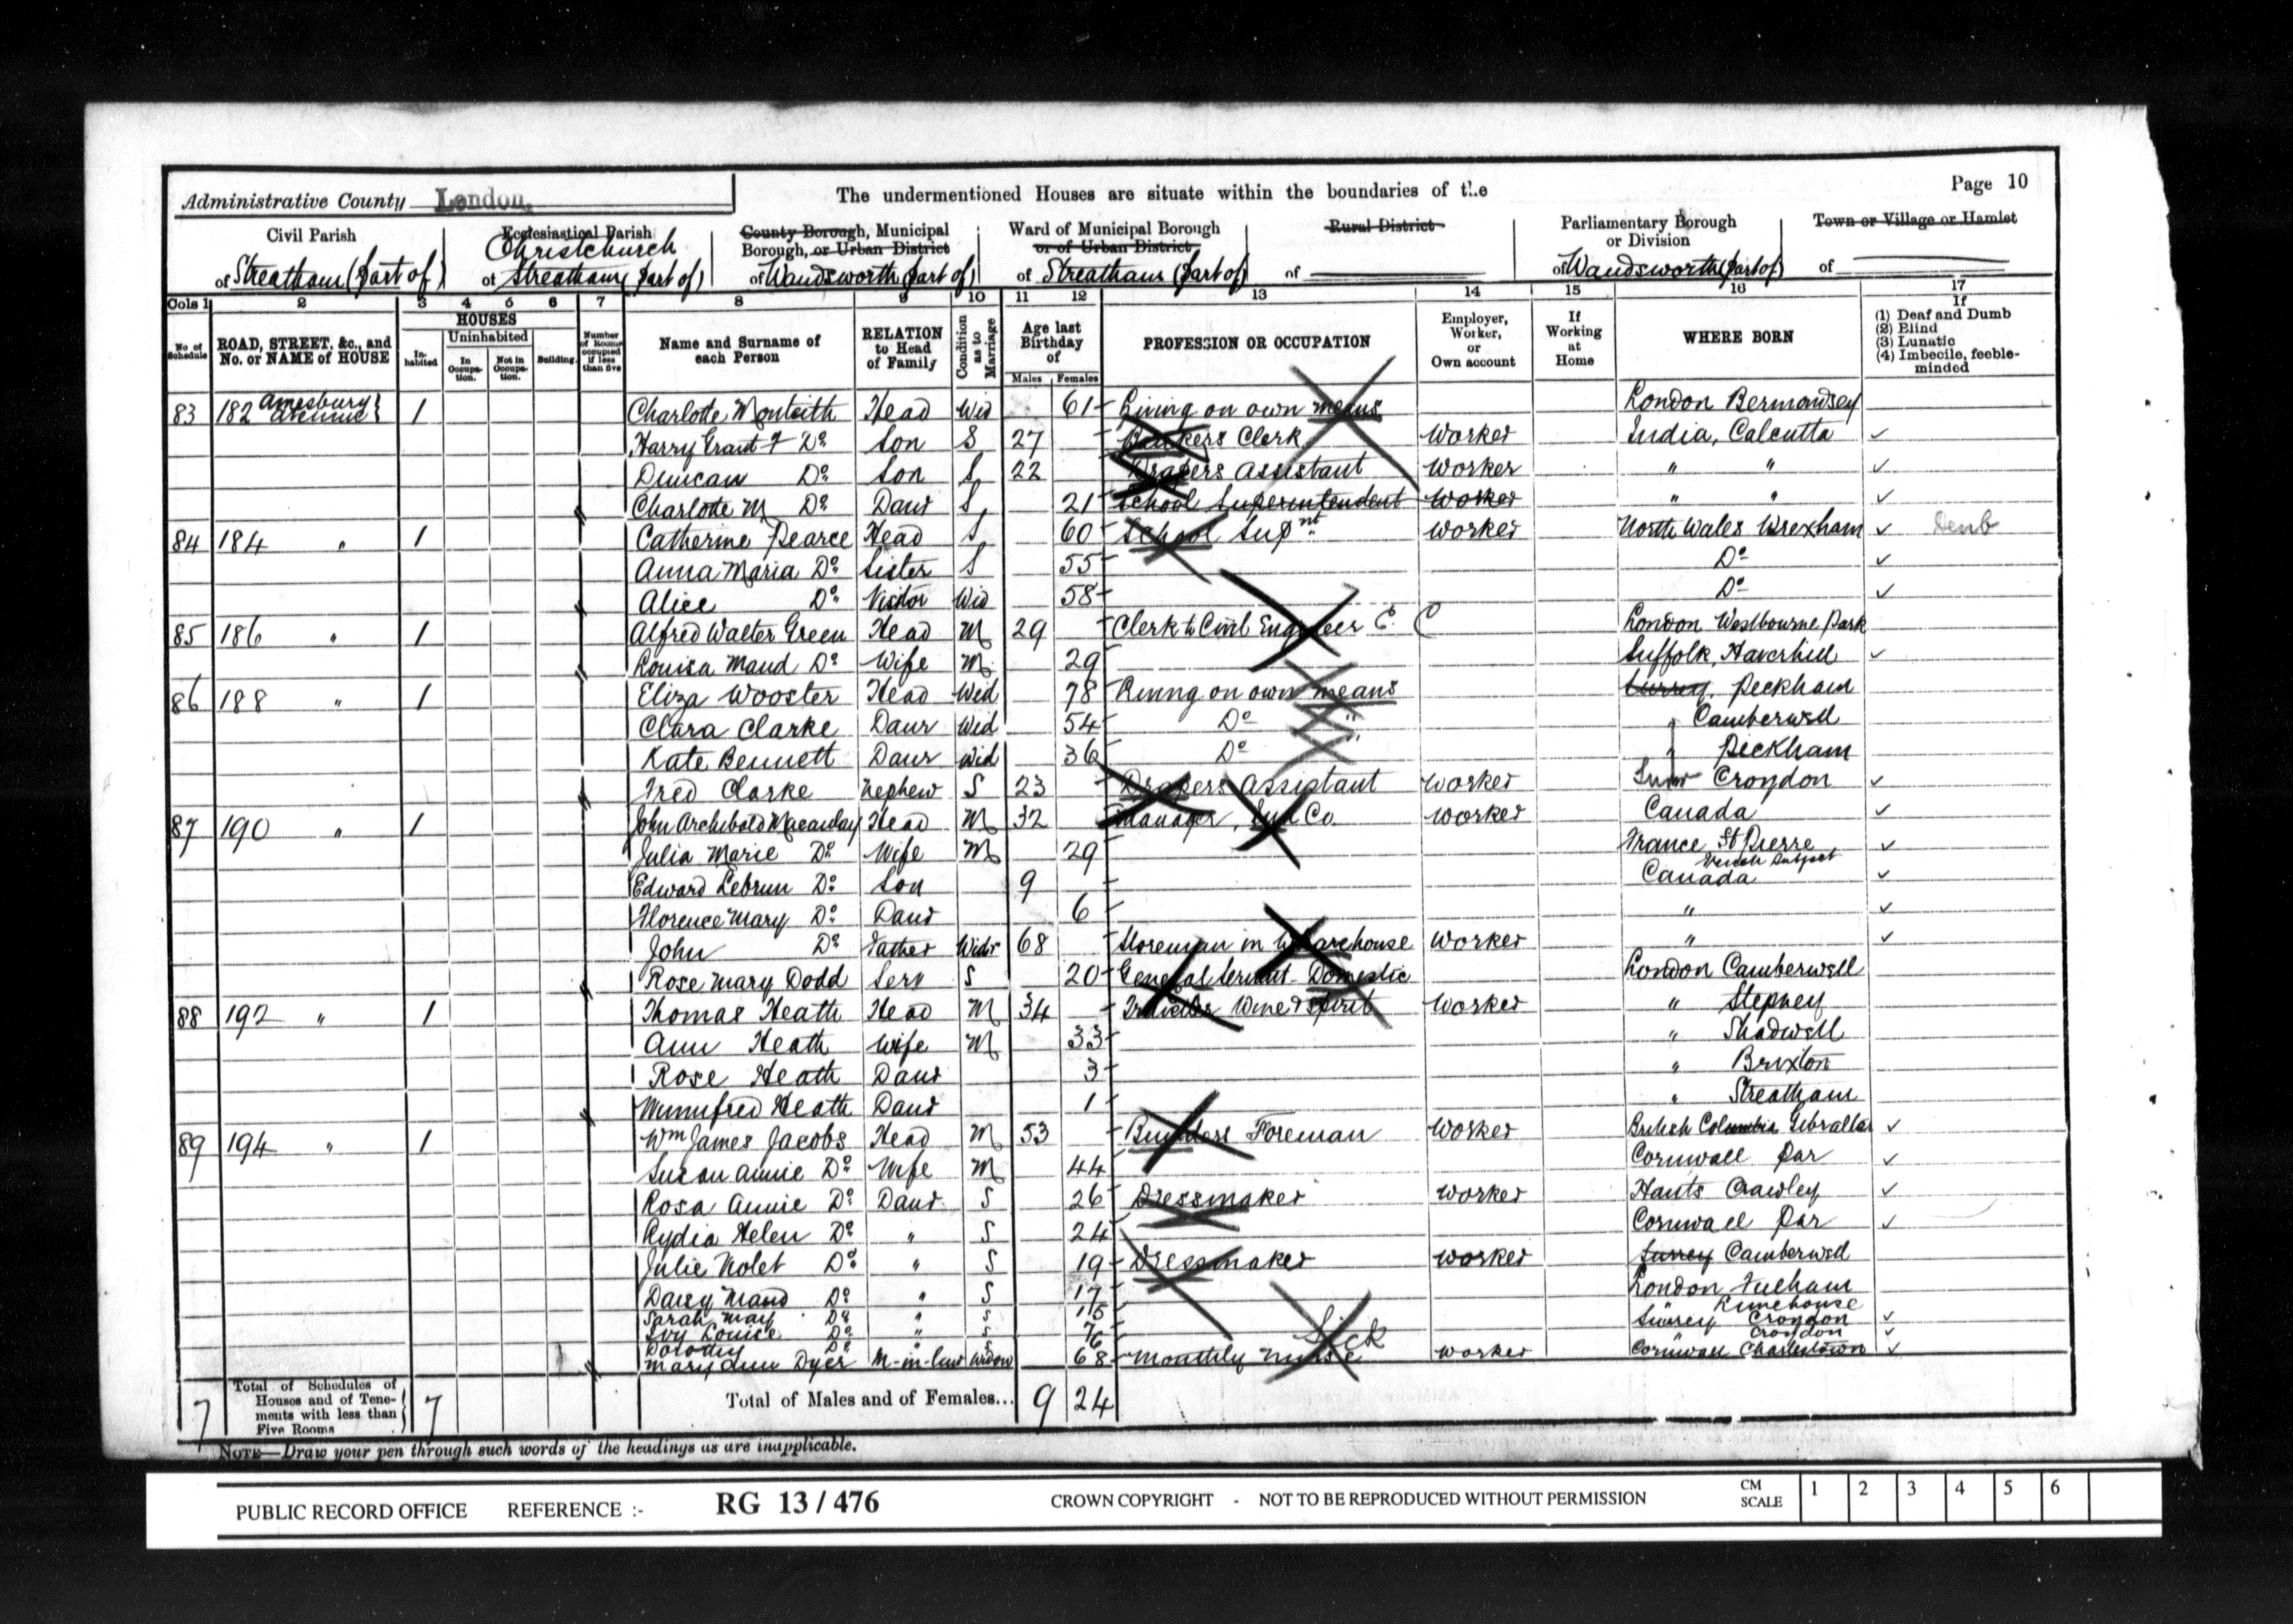 Page 10
Administrative County London,
The undermentioned Houses are situate within the boundaries of the
Civil Parish
of Streatham (part of)
Ecclesiastical Parish
Christchurch
of Streatham (part of)
County Borough, Municipal
Borough, or Urban District
of Wandsworth (part of)
Ward of Municipal Borough
or of Urban District
of Streatham (part of)
Rural District
of
Parliamentary Borough
or Division
of Wandsworth (part of)
Town or Village or Hamlet
of
Cols 1 2 3 4 5 6 7 8 9 10 11 12 13 14 15 16 17
No. of Schedule
ROAD, STREET, &c., and No. or NAME of HOUSE
HOUSES
Inhabited
Uninhabited
In Occupation.
Not in Occupation.
Building
Number of Rooms occupied if less than five
Name and Surname of each Person
RELATION to Head of Family
Condition as to Marriage
Age last Birthday of
Males Females
PROFESSION OR OCCUPATION
Employer, Worker, or Own account
If Working at Home
WHERE BORN
If
(1) Deaf and Dumb
(2) Blind
(3) Lunatic
(4) Imbecile, feeble-minded
83 182 Amesbury Avenue 1 Charlotte Monteith Head Wid 61 Living on own means London Bermondsey
Harry Grant Do Son S 27 Bankers Clerk Worker India, Calcutta
Duncan Do Son S 22 Drapers Assistant Worker " "
Charlotte M Do Daur S 21 School Superintendent Worker " "
84 184 " 1 Catherine Pearce Head S 60 School Supnt Worker North Wales Wrexham Denb
Anna Maria Do Sister S 55 Do
Alice Do Visitor Wid 58 Do
85 186 " 1 Alfred Walter Green Head M 29 Clerk to Civil Engineer London Westbourne Park
Louisa Maud Do Wife M 29 Suffolk, Haverhill
86 188 " 1 Eliza Wooster Head Wid 78 Living on own means Surrey, Peckham
Clara Clarke Daur Wid 54 Do " " Camberwell
Kate Bennett Daur Wid 36 Do " Peckham
Fred Clarke Nephew S 23 Drapers Assistant Worker Croydon
87 190 " 1 John Archibald Macaulay Head M 32 Manager, Co. Worker Canada
Julia Marie Do Wife M 29 France St Pierre
French Subject
Edward Lebrun Do Son 9 Canada
Florence Mary Do Daur 6 "
John Do Father Widr 68 Storeman in Warehouse Worker "
Rose Mary Dodd Serv S 20 General Servant Domestic London Camberwell
88 192 " 1 Thomas Heath Head M 34 Wine & Spirit Worker " Stepney
Ann Heath Wife M 33 " Shadwell
Rose Heath Daur 3 " Brixton
Winnifred Heath Daur 1 " Streatham
89 194 " 1 Wm James Jacobs Head M 53 Builders Foreman Worker British Columbia Gibraltar
Susan Annie Do Wife M 44 Cornwall Par
Rosa Annie Do Daur S 26 Dressmaker Worker Hants Crawley
Lydia Helen Do " S 24 Cornwall Par
Julie Violet Do " S 19 Dressmaker Worker Surrey Camberwell
Daisy Maud Do " S 17 London Fulham
Sarah May Do " S 15 Limehouse
Ivy Louise Do " S 7 Surrey Croydon
Dorothy Do " S 6 " Croydon
Mary Ann Dyer M-in-law Widow 68 Monthly Nurse Sick Worker Cornwall Charlestown
7 Total of Schedules of Houses and of Tenements with less than Five Rooms 7
Total of Males and of Females... 9 24
NOTE—Draw your pen through such words of the headings as are inapplicable.
PUBLIC RECORD OFFICE REFERENCE :- RG 13 / 476 CROWN COPYRIGHT - NOT TO BE REPRODUCED WITHOUT PERMISSION CM SCALE 1 2 3 4 5 6